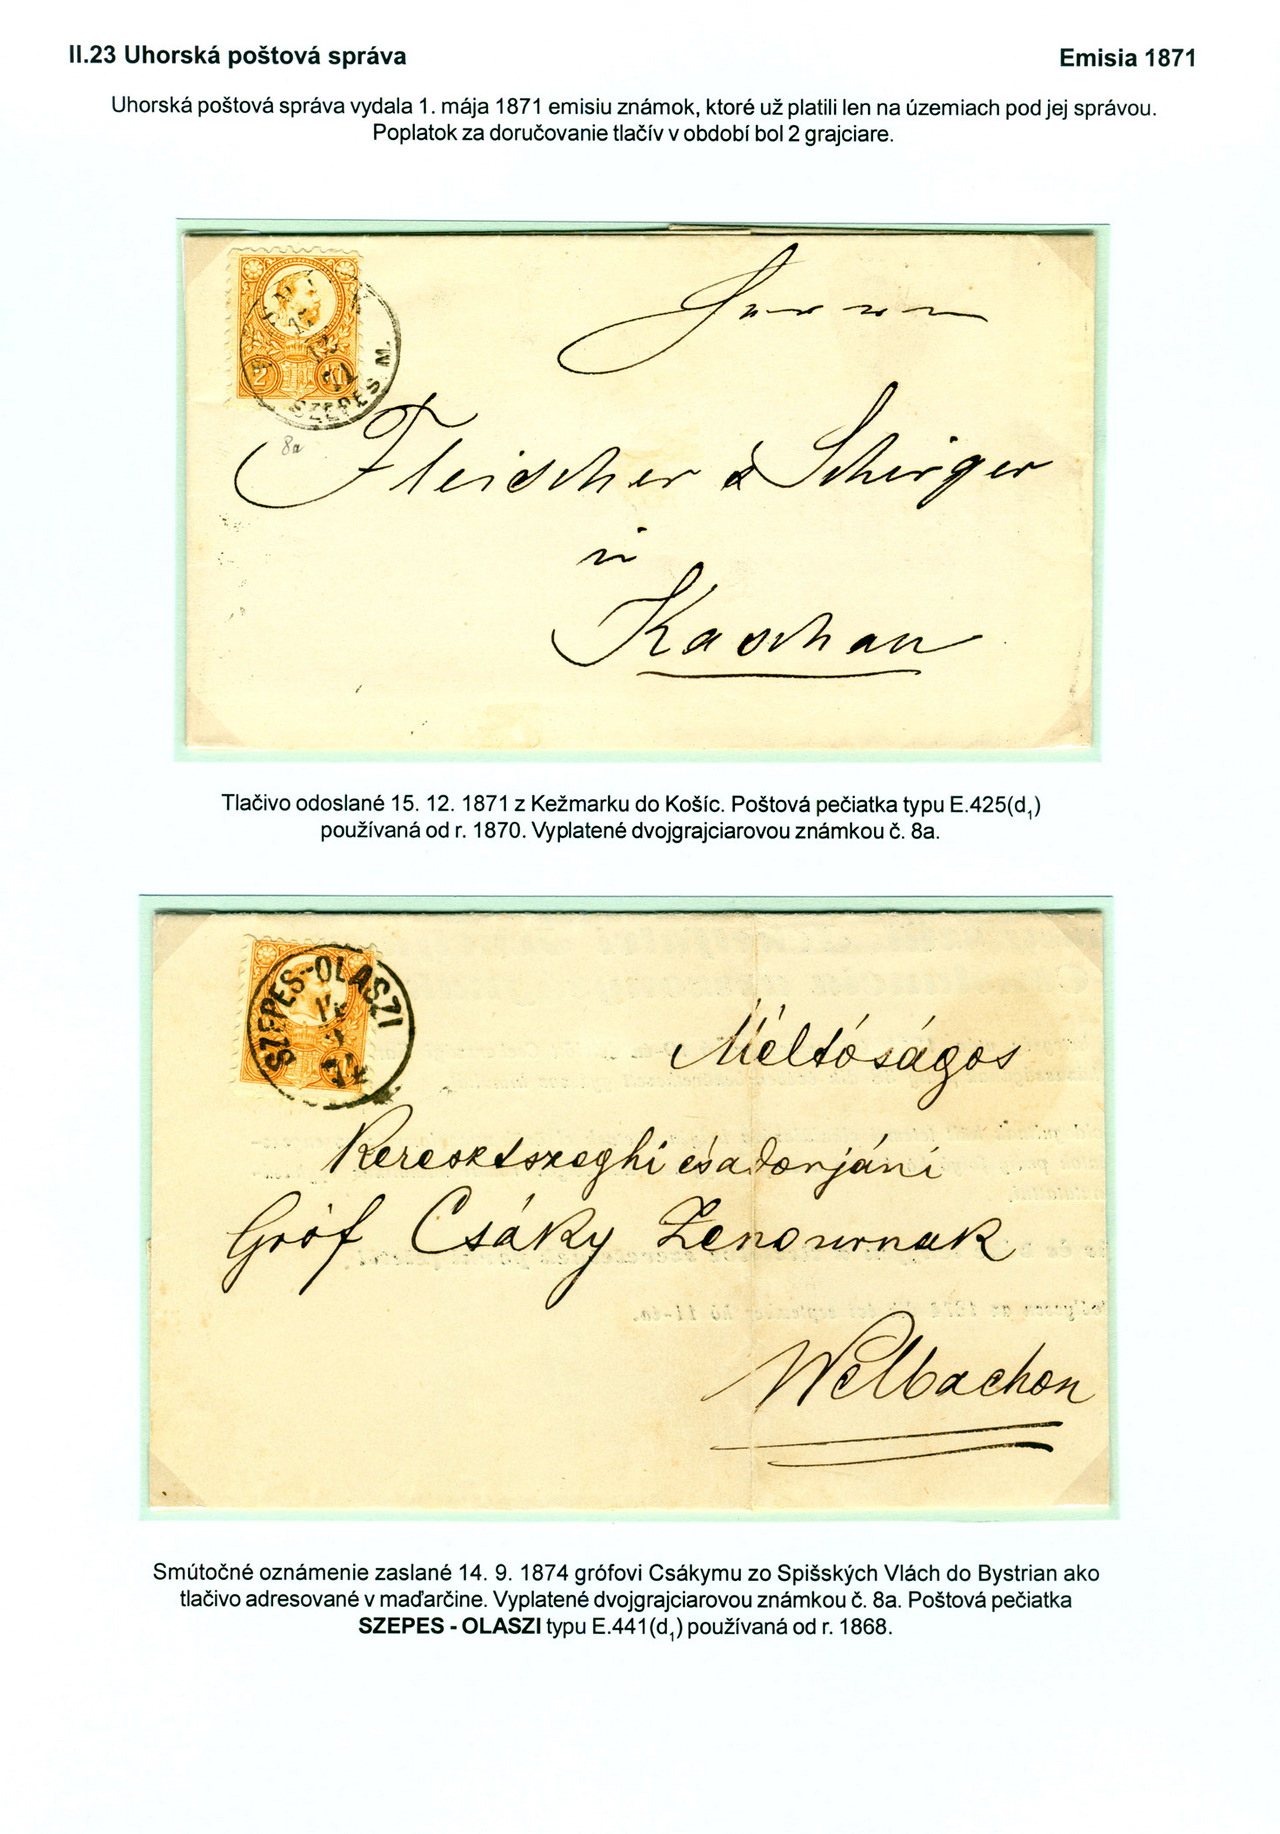 II.23 Uhorská poštová správa
Emisia 1871
Uhorská poštová správa vydala 1. mája 1871 emisiu známok, ktoré už platili len na územiach pod jej správou.
Poplatok za doručovanie tlačív v období bol 2 grajciare.
2
12
71
SZEPES M.
8a
Herrn
Fleischer & Schirger
in
Kaschau
Tlačivo odoslané 15. 12. 1871 z Kežmarku do Košíc. Poštová pečiatka typu E.425(d₁)
používaná od r. 1870. Vyplatené dvojgrajciarovou známkou č. 8a.
SZEPES-OLASZI
14
74
Méltóságos
Keresztszeghi és adorjáni
Gróf Csáky Zenournak
Welbachon
Smútočné oznámenie zaslané 14. 9. 1874 grófovi Csákymu zo Spišských Vlách do Bystrian ako
tlačivo adresované v maďarčine. Vyplatené dvojgrajciarovou známkou č. 8a. Poštová pečiatka
SZEPES - OLASZI typu E.441(d₁) používaná od r. 1868.